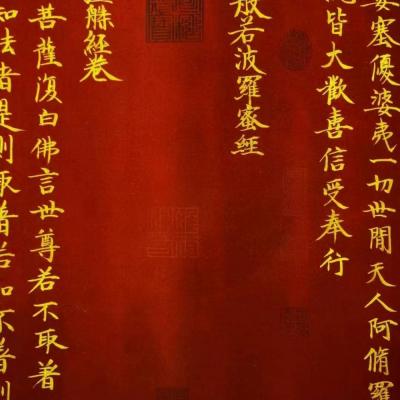 婆塞優婆夷一切世間天人阿脩羅
皆大歡喜信受奉行
般若波羅蜜經
經卷
菩薩復白佛言世尊若不取著
法者是則取著若知不善則